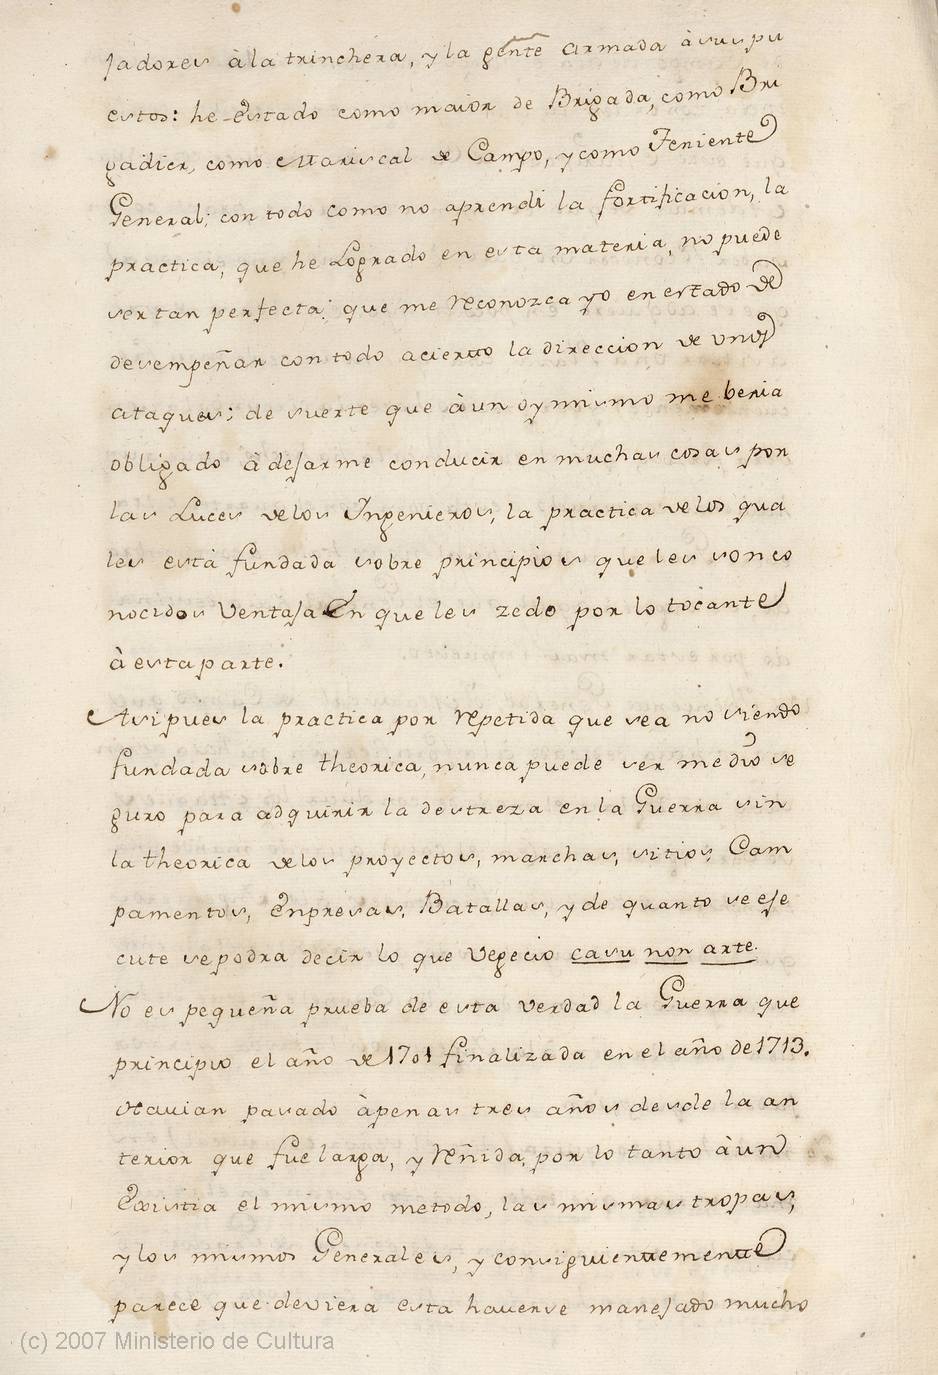 jadores à la trinchera, y la gente armada à sus pu
estos: he estado como maior de Brigada, como Bri
gadier, como Mariscal de Campo, y como Teniente
General; con todo como no aprendi la fortificacion, la
practica, que he Logrado en esta materia, no puede
ser tan perfecta; que me reconozca yo en estado de
desempeñar con todo acierto la direccion de unos
ataques; de suerte que àun oy mismo me beria
obligado à dejarme conducir en muchas cosas por
las Luces de los Ingenieros, la practica de los qua
les està fundada sobre principios que les son co
nocidos Ventaja En que les zedo por lo tocante
à esta parte.
Asi pues la practica por repetida que sea no siendo
fundada sobre theorica, nunca puede ser medio se
guro para adquirir la destreza en la Guerra sin
la theorica de los proyectos, marchas, sitios, Cam
pamentos, Enpresas, Batallas, y de quanto se eje
cute se podra decir lo que Vegecio casu non arte.
No es pequeña prueba de esta verdad la Guerra que
principio el año de 1701 finalizada en el año de 1713.
havian pasado àpenas tres años desde la an
terior que fue larga, y reñida, por lo tanto àun
Existia el mismo metodo, las mismas tropas,
y los mismos Generales, y consiguientemente
parece que deviera esta haverse manejado mucho
(c) 2007 Ministerio de Cultura